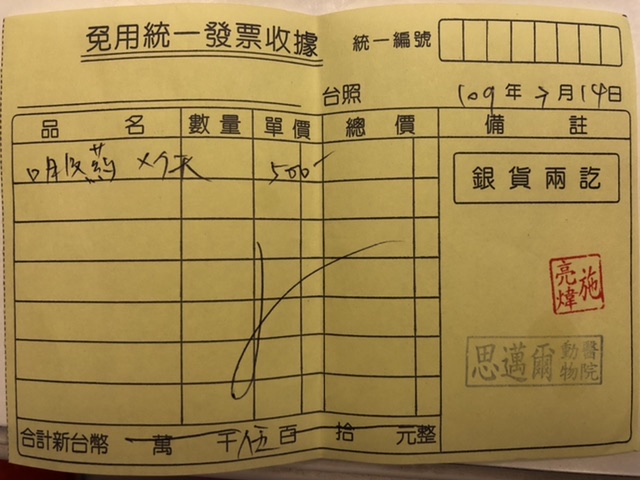 免用統一發票收據
統一編號
台照
109年7月14日
品名 數量 單價 總價 備註
口服藥 500
銀貨兩訖
施亮煒
思邁爾動物醫院
合計新台幣 萬 千伍百 拾 元整